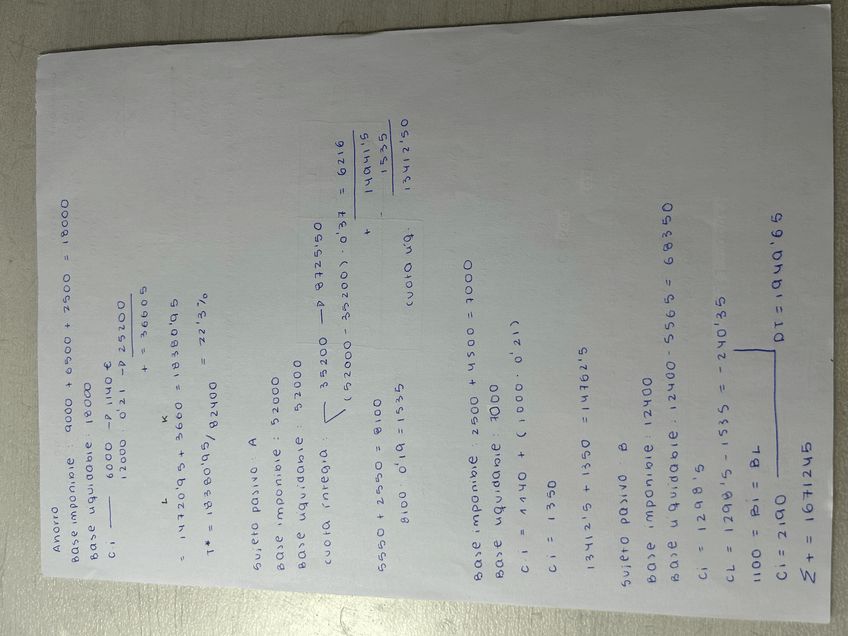 Ahorro
Base imponible : 9000 + 6500 + 2500 = 18000
Base liquidable : 18000
C.I 6000 → 1140 €
12000 0'21 → 25200
+ = 36605
L K
= 14720'95 + 3660 = 18380'95
T* = 18380'95/82400 = 22'3%
Sujeto pasivo A
Base imponible : 52000
Base liquidable : 52000
cuota íntegra : 35200 → 8725'50
(52000 - 35200) · 0'37 = 6216
+ 14941'5
5550 + 2550 = 8100
- 1535
8100 · 0'19 = 1535
cuota liq. 13412'50
Base imponible : 2500 + 4500 = 7000
Base liquidable : 7000
C.I = 1140 + (1000 · 0'21)
Ci = 1350
13412'5 + 1350 = 14762'5
Sujeto pasivo B
Base imponible : 12400
Base liquidable : 12400 - 5565 = 68350
Ci = 1298'5
CL = 1298'5 - 1535 = -240'35
1100 = Bi = BL
Ci = 2190 DT = 1949'65
Σ + = 1671245